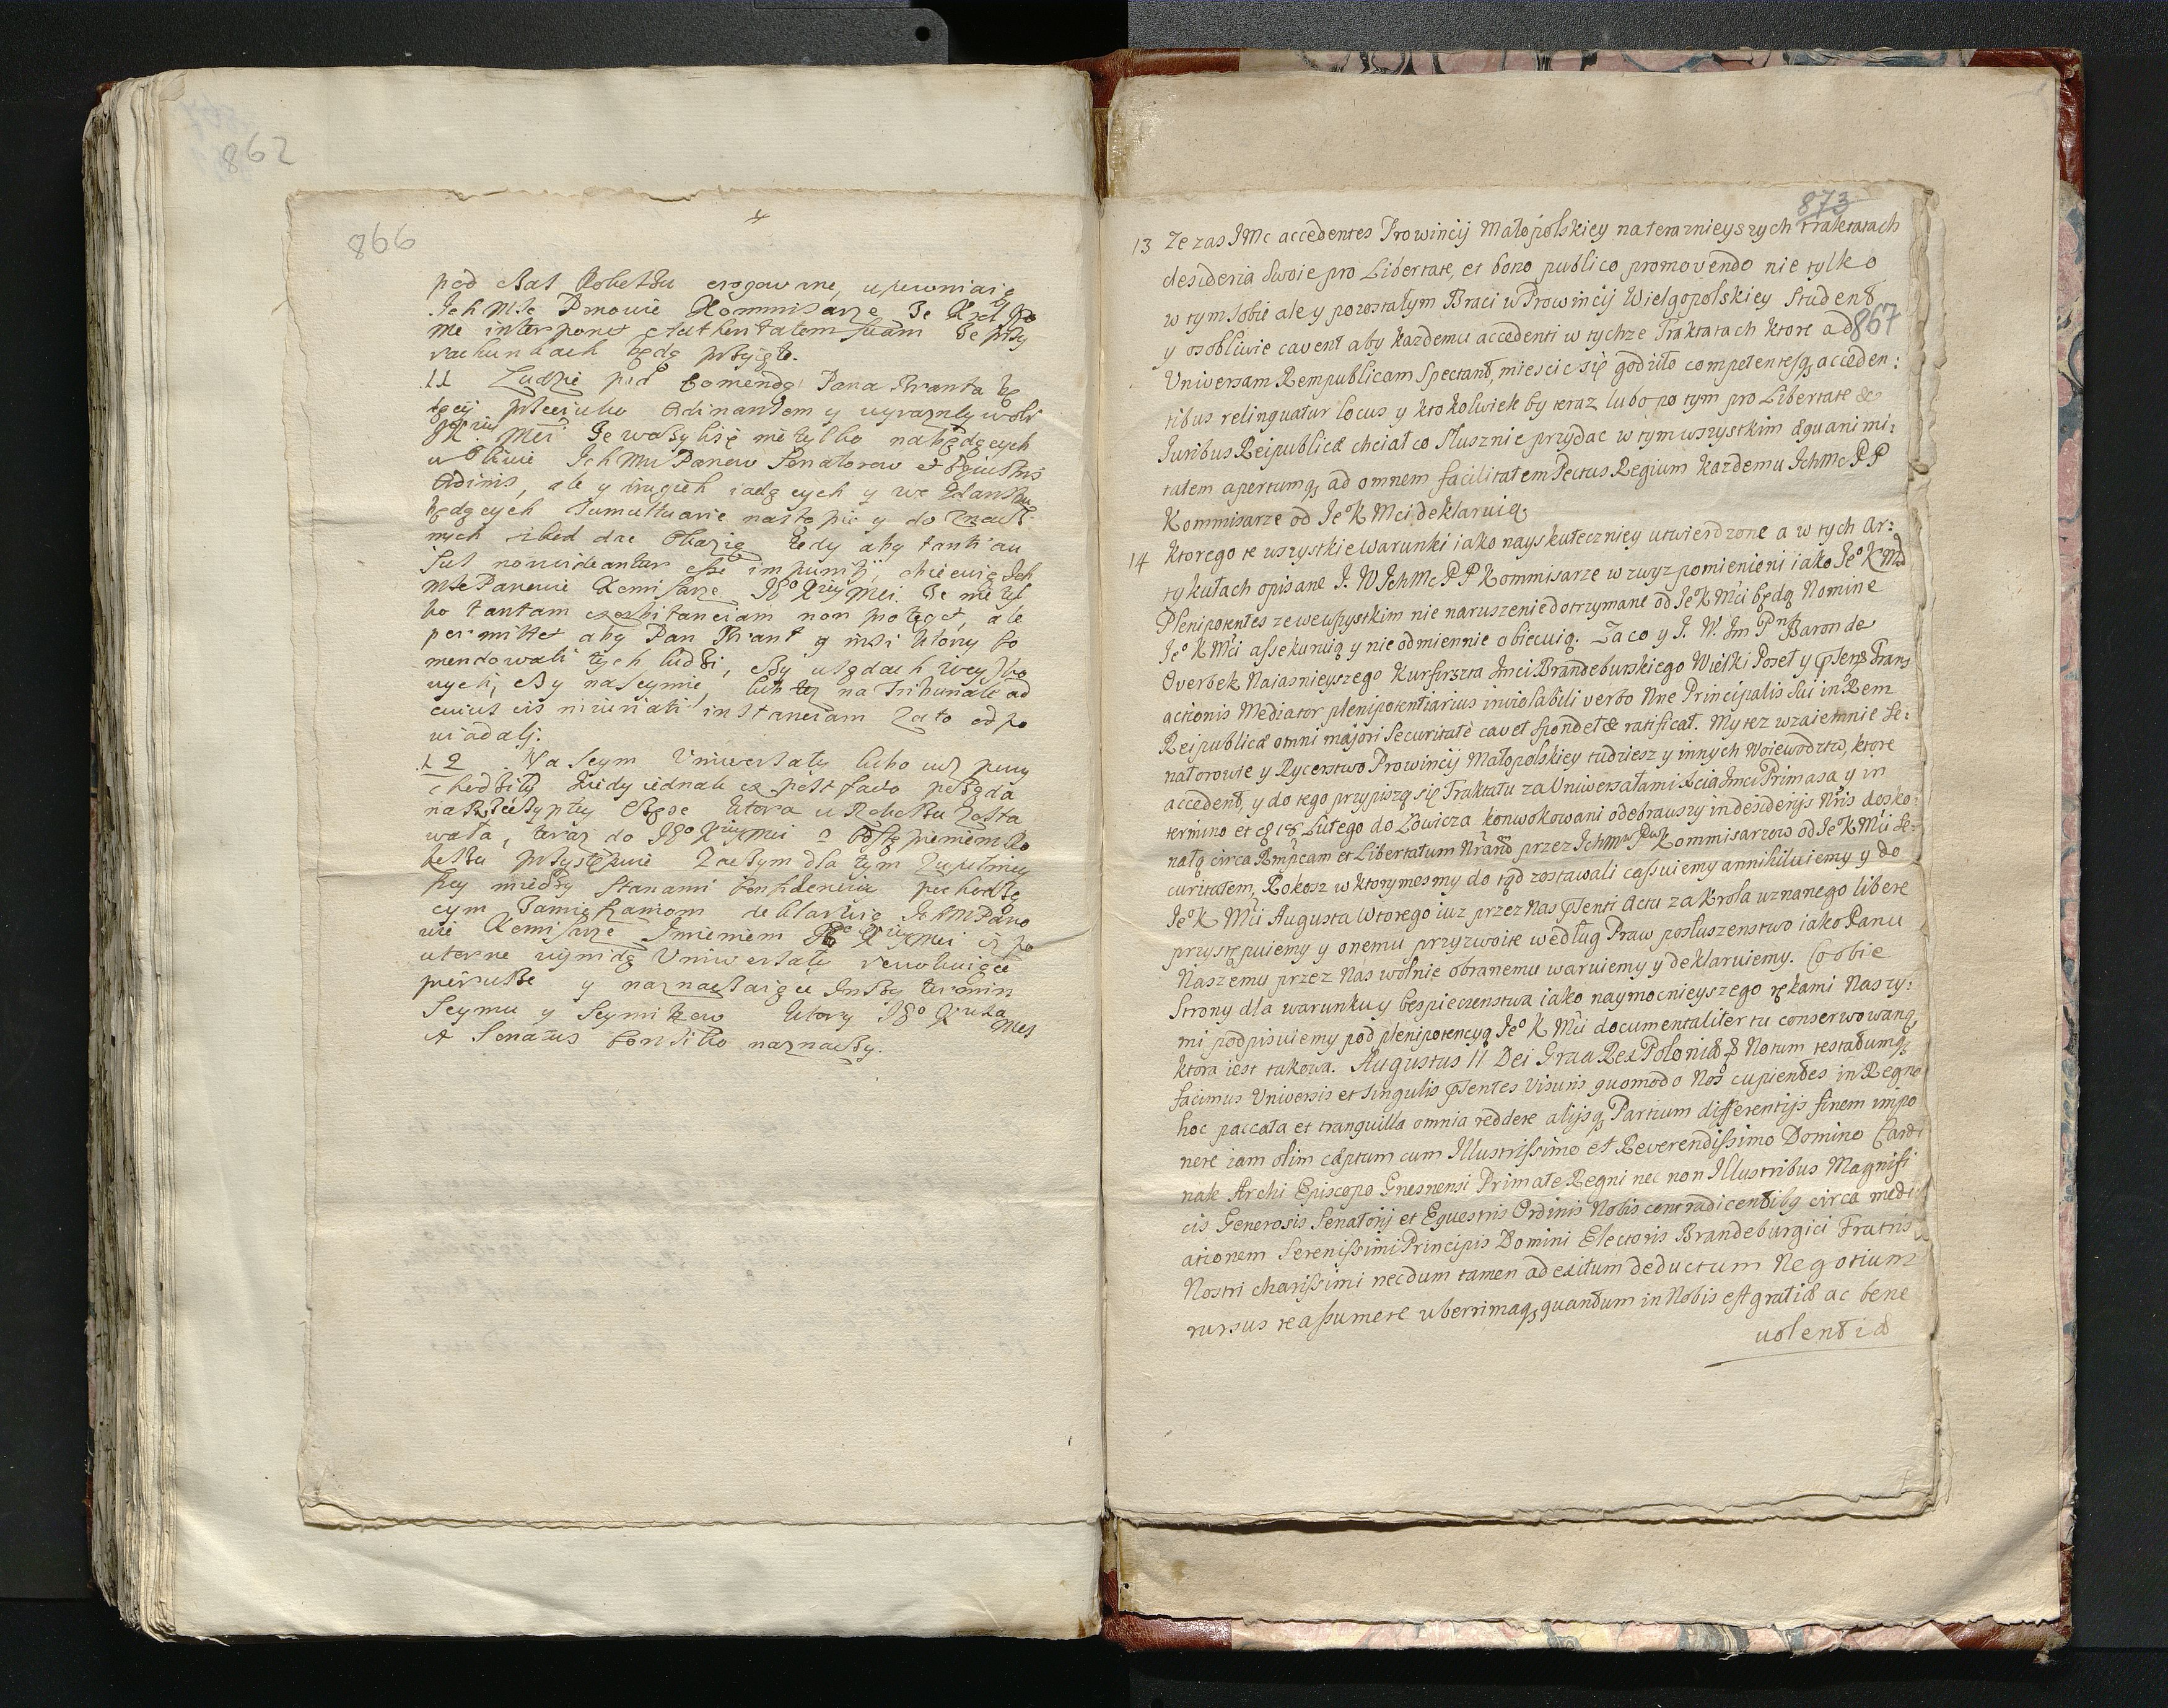 862
866
pod czas Rokoszu erogowane, upewniaią
Ich Mśc Panowie Kommisarze że Krol Je
me interponet Authoritatem suam że przy
rachunkach będą przyięte.
11 Ludzie pod Comendą Pana Branta bę
dący przeciwko Ordinansom y wyrazney woli
Mci że ważyli się nie tylko na będących
w Oliwie Ich Mw Panow Senatorow et Equestris
Ordinis, ale y inszych iadących y we Gdansku
będących Tumultuarie nastąpic y do znacz
nych szkod dac Okazyą tedy aby tanti au
sus non videantur esse impuniti, obiecuią Ich
Mśc Panowie Komisarze Je° Krey Mci. że nie tyl
ko tantam exorbitanciam non proteget, ale
permittet aby Pan Brant y insi ktorzy ko
mendowali tych ludzi, czy w sądach woysko
wych, czy na Seymie, lub też na Tribunale ad
cuius vis iniuriati instanciam za to odpo
wiadali.
12. Na Seym Uniwersały lubo iuz pierwy
chodziły kiedy iednak ex post facto pożąda
na Rzeczyptey Częsc ktora w Rokoszu zosta
wała, teraz do Je° Krey Mci o odstąpieniem Ro
koszu przystępuie zaczym dla tym zupełniey
szey między Stanami Confidencij pochodzą
cym zamięszaniom deklaruią Ich M Pano
wie Komisarze Imieniem Je° Krey Mci iz po
wtorne wynidą Uniwersały rewokuiące
pierwsze y naznaczaiące Inszy termin
Seymu y Seymikow ktory Je° K
Mcs
A Senatus Consilio naznaczy.
873
13 Ze zas I Mc accedentes Prowincij Małopolskiey na teraznieyszych traktatach
desideria swoie pro Libertate, et bono publico promovendo nie tylko
w tym sobie ale y pozostałym Braci w Prowincij Wielgopolskiey Student
y osobliwie cavent aby kazdemu accedenti w tychze Traktatach ktore ad
867
Universam Rempublicam Spectant, miescic się godziło competensq, acceden:
tibus relinquatur locus y ktokolwiek by teraz lubo po tym pro Libertate &
Iuribus Reipublicæ chciał co słusznie przydac w tym wszystkim æquanimi:
tatem apertumq, ad omnem facilitatem Pectus Regium kazdemu Ich Mc PP
Kommisarze od Je°K Mci deklaruią.
14 Ktorego te wszystkie warunki iako nayskuteczniey utwierdzone a w tych Ar:
tykułach opisane J. W Ich Mc PP Kommisarze wzwyz pomienieni iako Je° K Mci
Plenipotentes ze we wszystkim nie naruszenie dotrzymane od Je°K Mci będą Nomine
Je° K Mci assekuruią y nieodmiennie obiecuią. Zaco y J. W. Im Pn Baron de
Overbek Naiasnieyszego Kurfirszta Imci Brandeburskiego Wielki Poseł y pstens Trans
actionis Mediator plenipotentiarius inviolabili verbo Nne Principalis sui in Rem
Reipublicæ omni majori Securitate cavet spondet & ratificat. My tez wzaiemnie Se:
natorowie y Rycerstwo Prowincij Małopolskiey tudziesz y innych Woiewodztw, ktore
accedent, y do tego przypiszą się Traktatu za Uniwersałami Xcia Imci Primasa y in
termino et 18 Lutego do Łowicza konwokowani odebrawszy in desiderijs Nris dosko:
nałą circa Rempcam et Libertatum Nrarum przez Ich Mw Pw Kommisarzow od Je°K Mci Se:
curitatem, Rokosz w ktorymesmy do tąd zostawali cassuiemy annihiluiemy y do
Je°K Mci Augusta Wtorego iuz przez nas pstenti Actu za Krola uznanego libere
przystępuiemy y onemu przyzwoite według Praw posłuszenstwo iako Panu
Naszemu przez Nas wolnie obranemu waruiemy y deklaruiemy. Co obie
Strony dla warunku y bespieczenstwa iako naymocnieyszego rękami Naszy:
mi podpisuiemy pod plenipotencyą Je° K Mci documentaliter tu conserwowaną,
ktora iest takowa. Augustus II Dei Graa Rex Poloniæ & Notum testatumq,
facimus Universis et singulis pstentes visuris quomodo Nos cupientes in Regno
hoc paccata et tranquilla omnia reddere alijsq, Partium differentijs finem impo
nere iam olim cæptum cum Illustrissimo et Reverendissimo Domino Cardi
nale Archi Episcopo Gnesnensi Primate Regni nec non Illustribus Magnifi
cis Generosis Senatorij et Equestris Ordinis Nobis contradicentibq circa medi
ationem Serenissimi Principis Domini Electoris Brandeburgici Fratris
Nostri charissimi necdum tamen ad exitum deductum Negotium
rursus reassumere uberrimaq, quantum in Nobis est gratiæ ac bene
volentiæ